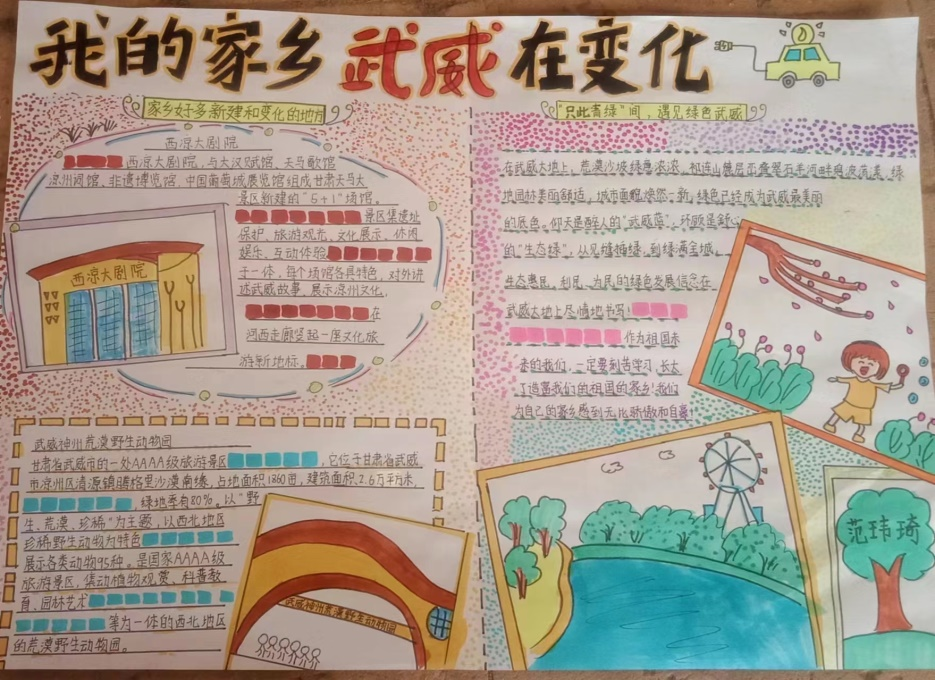 我的家乡武威在变化
家乡好多新建和变化的地方
西凉大剧院
西凉大剧院,与大汉赋馆、天马歌馆
凉州词馆、非遗博览馆、中国葡萄城展览馆组成甘肃天马大
景区新建的“5+1”场馆。
景区集遗址
保护、旅游观光、文化展示、休闲
娱乐、互动体验
于一体,每个场馆各具特色,对外讲
述武威故事、展示凉州文化,
在
河西走廊竖起一座文化旅
游新地标。
西凉大剧院
武威神州荒漠野生动物园
甘肃省武威市的一处AAAA级旅游景区,它位于甘肃省武威
市凉州区清源镇腾格里沙漠南缘,占地面积1360亩,建筑面积2.6万平方米,
绿地率有80%。以“野
生、荒漠、珍稀”为主题,以西北地区
珍稀野生动物为特色
展示各类动物95种,是国家AAAA级
旅游景区,集动植物观赏、科普教
育、园林艺术
等为一体的西北地区
的荒漠野生动物园。
“只此青绿”间,遇见绿色武威
在武威大地上,荒漠沙坡绿意浓浓,祁连山麓层峦叠翠石羊河畔
绿
地园林美丽舒适,城市面貌焕然一新,绿色已经成为武威最美丽
的底色。仰天是醉人的“武威蓝”,环顾是舒心
的“生态绿”,从见缝插绿,到绿满金城,
生态惠民、利民、为民的绿色发展信念在
武威大地上尽情地书写!
作为祖国未
来的我们,一定要刻苦学习,长大
了建设我们的祖国的家乡!我们
为自己的家乡感到无比骄傲和自豪!
范玮琦